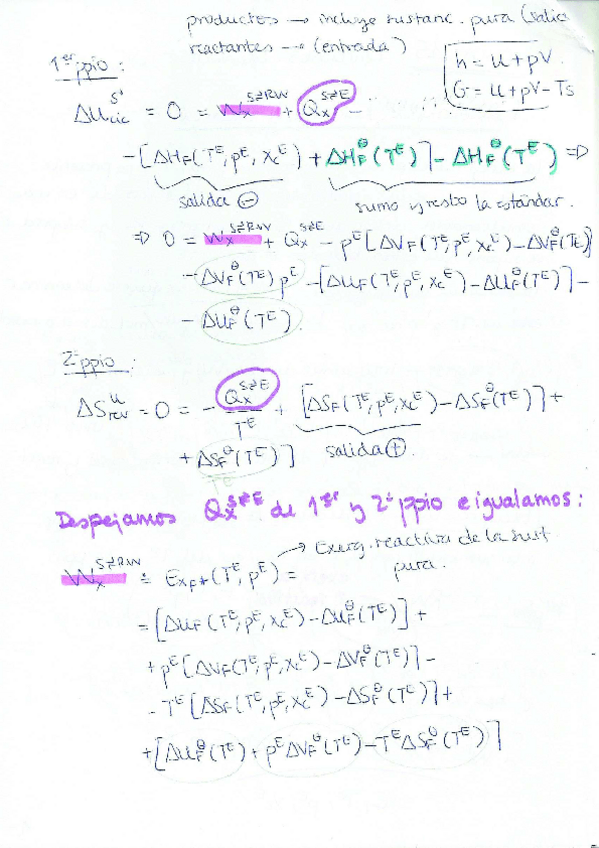 productos → incluye sustanc. pura (salid
reactantes → (entrada)
1er ppio:
h = u + pV
G = u + pV - Ts
ΔU_cic^S' = 0 = W_x^{S⇄RW} + Q_x^{S⇄E} -
-[ΔH_F(T^E, p^E, x_c^E) + ΔH_F^θ(T^E)] - ΔH_F^θ(T^E) ⇒
salida ⊖ sumo y resto la estándar.
⇒ 0 = W_x^{S⇄RW} + Q_x^{S⇄E} - p^E[ΔV_F(T^E, p^E, x_c^E) - ΔV_F^θ(T^E)]
-ΔV_F^θ(T^E) p^E - [ΔU_F(T^E, p^E, x_c^E) - ΔU_F^θ(T^E)] -
- ΔU_F^θ(T^E)
2º ppio:
ΔS_rev^U = 0 = - Q_x^{S⇄E} / T^E + [ΔS_F(T^E, p^E, x_c^E) - ΔS_F^θ(T^E)] +
+ ΔS_F^θ(T^E)] salida ⊕
Despejamos Q_x^{S⇄E} de 1er y 2º ppio e igualamos:
→ Exerg. reactiva de la sust
pura.
W_x^{S⇄RW} ≡ Ex_{F*}(T^E, p^E) =
= [ΔU_F(T^E, p^E, x_c^E) - ΔU_F^θ(T^E)] +
+ p^E[ΔV_F(T^E, p^E, x_c^E) - ΔV_F^θ(T^E)] -
- T^E[ΔS_F(T^E, p^E, x_c^E) - ΔS_F^θ(T^E)] +
+ [ΔU_F^θ(T^E) + p^E ΔV_F^θ(T^E) - T^E ΔS_F^θ(T^E)]